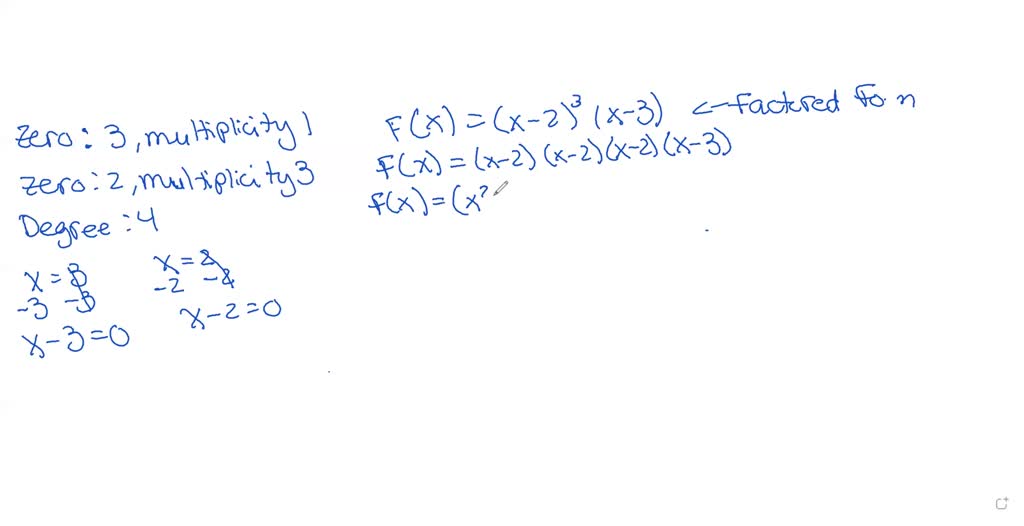 zero: 3, multiplicity 1
zero: 2, multiplicity 3
Degree: 4
x = 3
-3 -3
x - 3 = 0
x = 2
-2 -2
x - 2 = 0
F(x) = (x-2)³ (x-3) ← Factored Form
f(x) = (x-2)(x-2)(x-2)(x-3)
f(x) = (x²